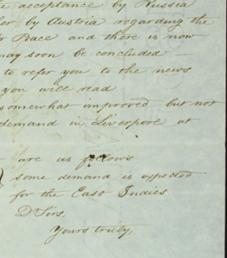 acceptance by Russia
by Austria regarding the
Peace and there is now
may soon be concluded
to refer you to the news
you will read
somewhat improved but not
demand in Liverpool at
are as follows
some demand is expected
for the East Indies
D Sirs,
Yours truly,